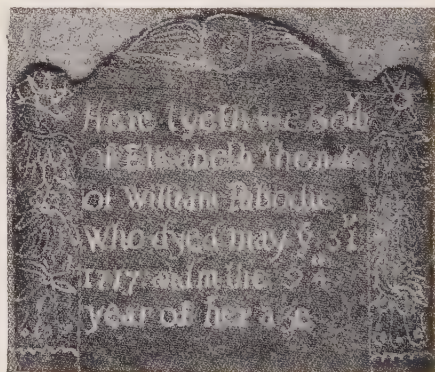 Here lyeth the Body
Of Elisabeth the
of William Pabodie
Who dyed may yᵉ 31
1717 and in the 94ᵗʰ
year of her age